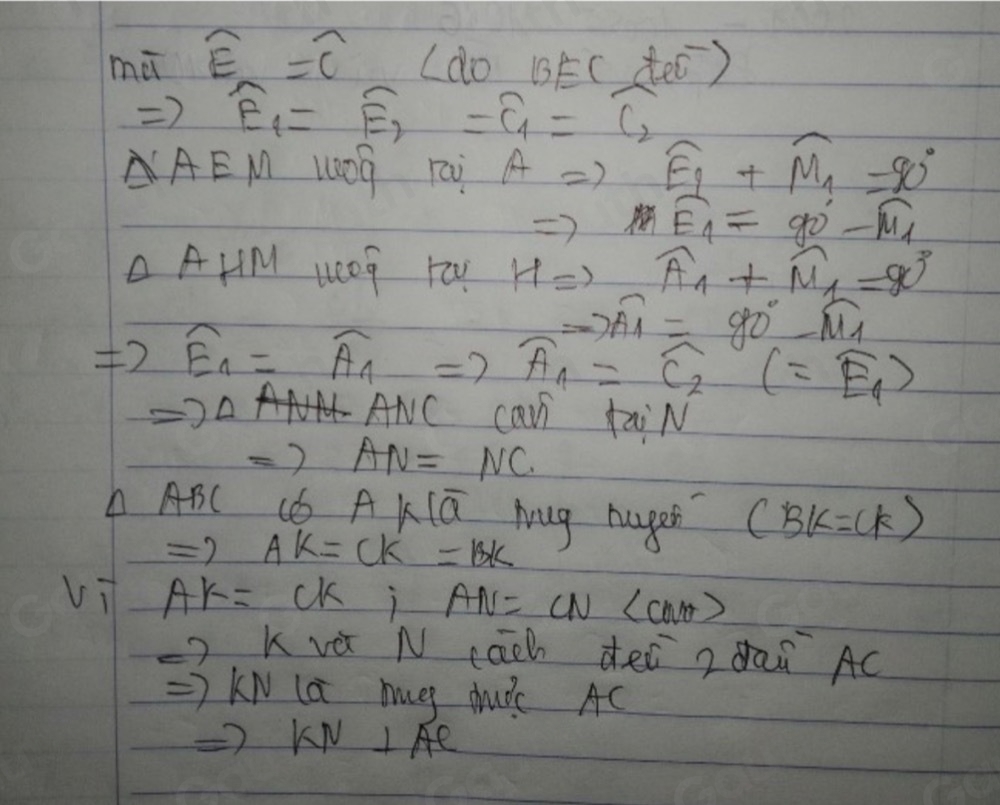 mà Ê = Ĉ (do BEC đều)
=> Ê₁ = Ê₂ = Ĉ₁ = Ĉ₂
Δ AEM vuông tại A => Ê₁ + M̂₁ = 90°
=> Ê₁ = 90° - M̂₁
Δ AHM vuông tại H => Â₁ + M̂₁ = 90°
=> Â₁ = 90° - M̂₁
=> Ê₁ = Â₁ => Â₁ = Ĉ₂ (= Ê₁)
=> Δ ANC cân tại N
=> AN = NC.
Δ ABC có AK là trung tuyến (BK = CK)
=> AK = CK = BK
Vì AK = CK ; AN = CN (cmtr)
=> K và N cách đều 2 đầu AC
=> KN là trung trực AC
=> KN ⊥ AC